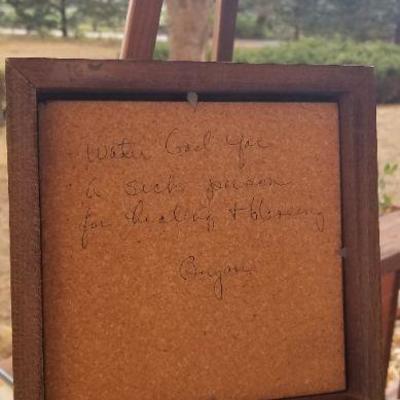 Water God Yei
a sick person
for healing & blessing
Bryan